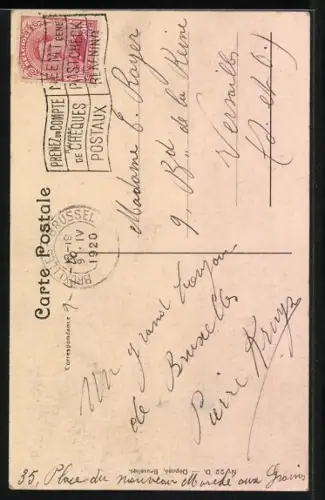 Carte Postale
PRENEZ UN COMPTE
DE CHÈQUES
POSTAUX
NEEMT EENE
POSTCHECK
REKENING
BRUXELLES BRUSSEL
18-19
9 IV
1920
Correspondance
Madame E. Royer
9, Bd de la Reine
Versailles
(S. et O.)
Un grand bonjour
de Bruxelles
Pierre
35, Place du nouveau Marché aux Grains
Déposé, Bruxelles.